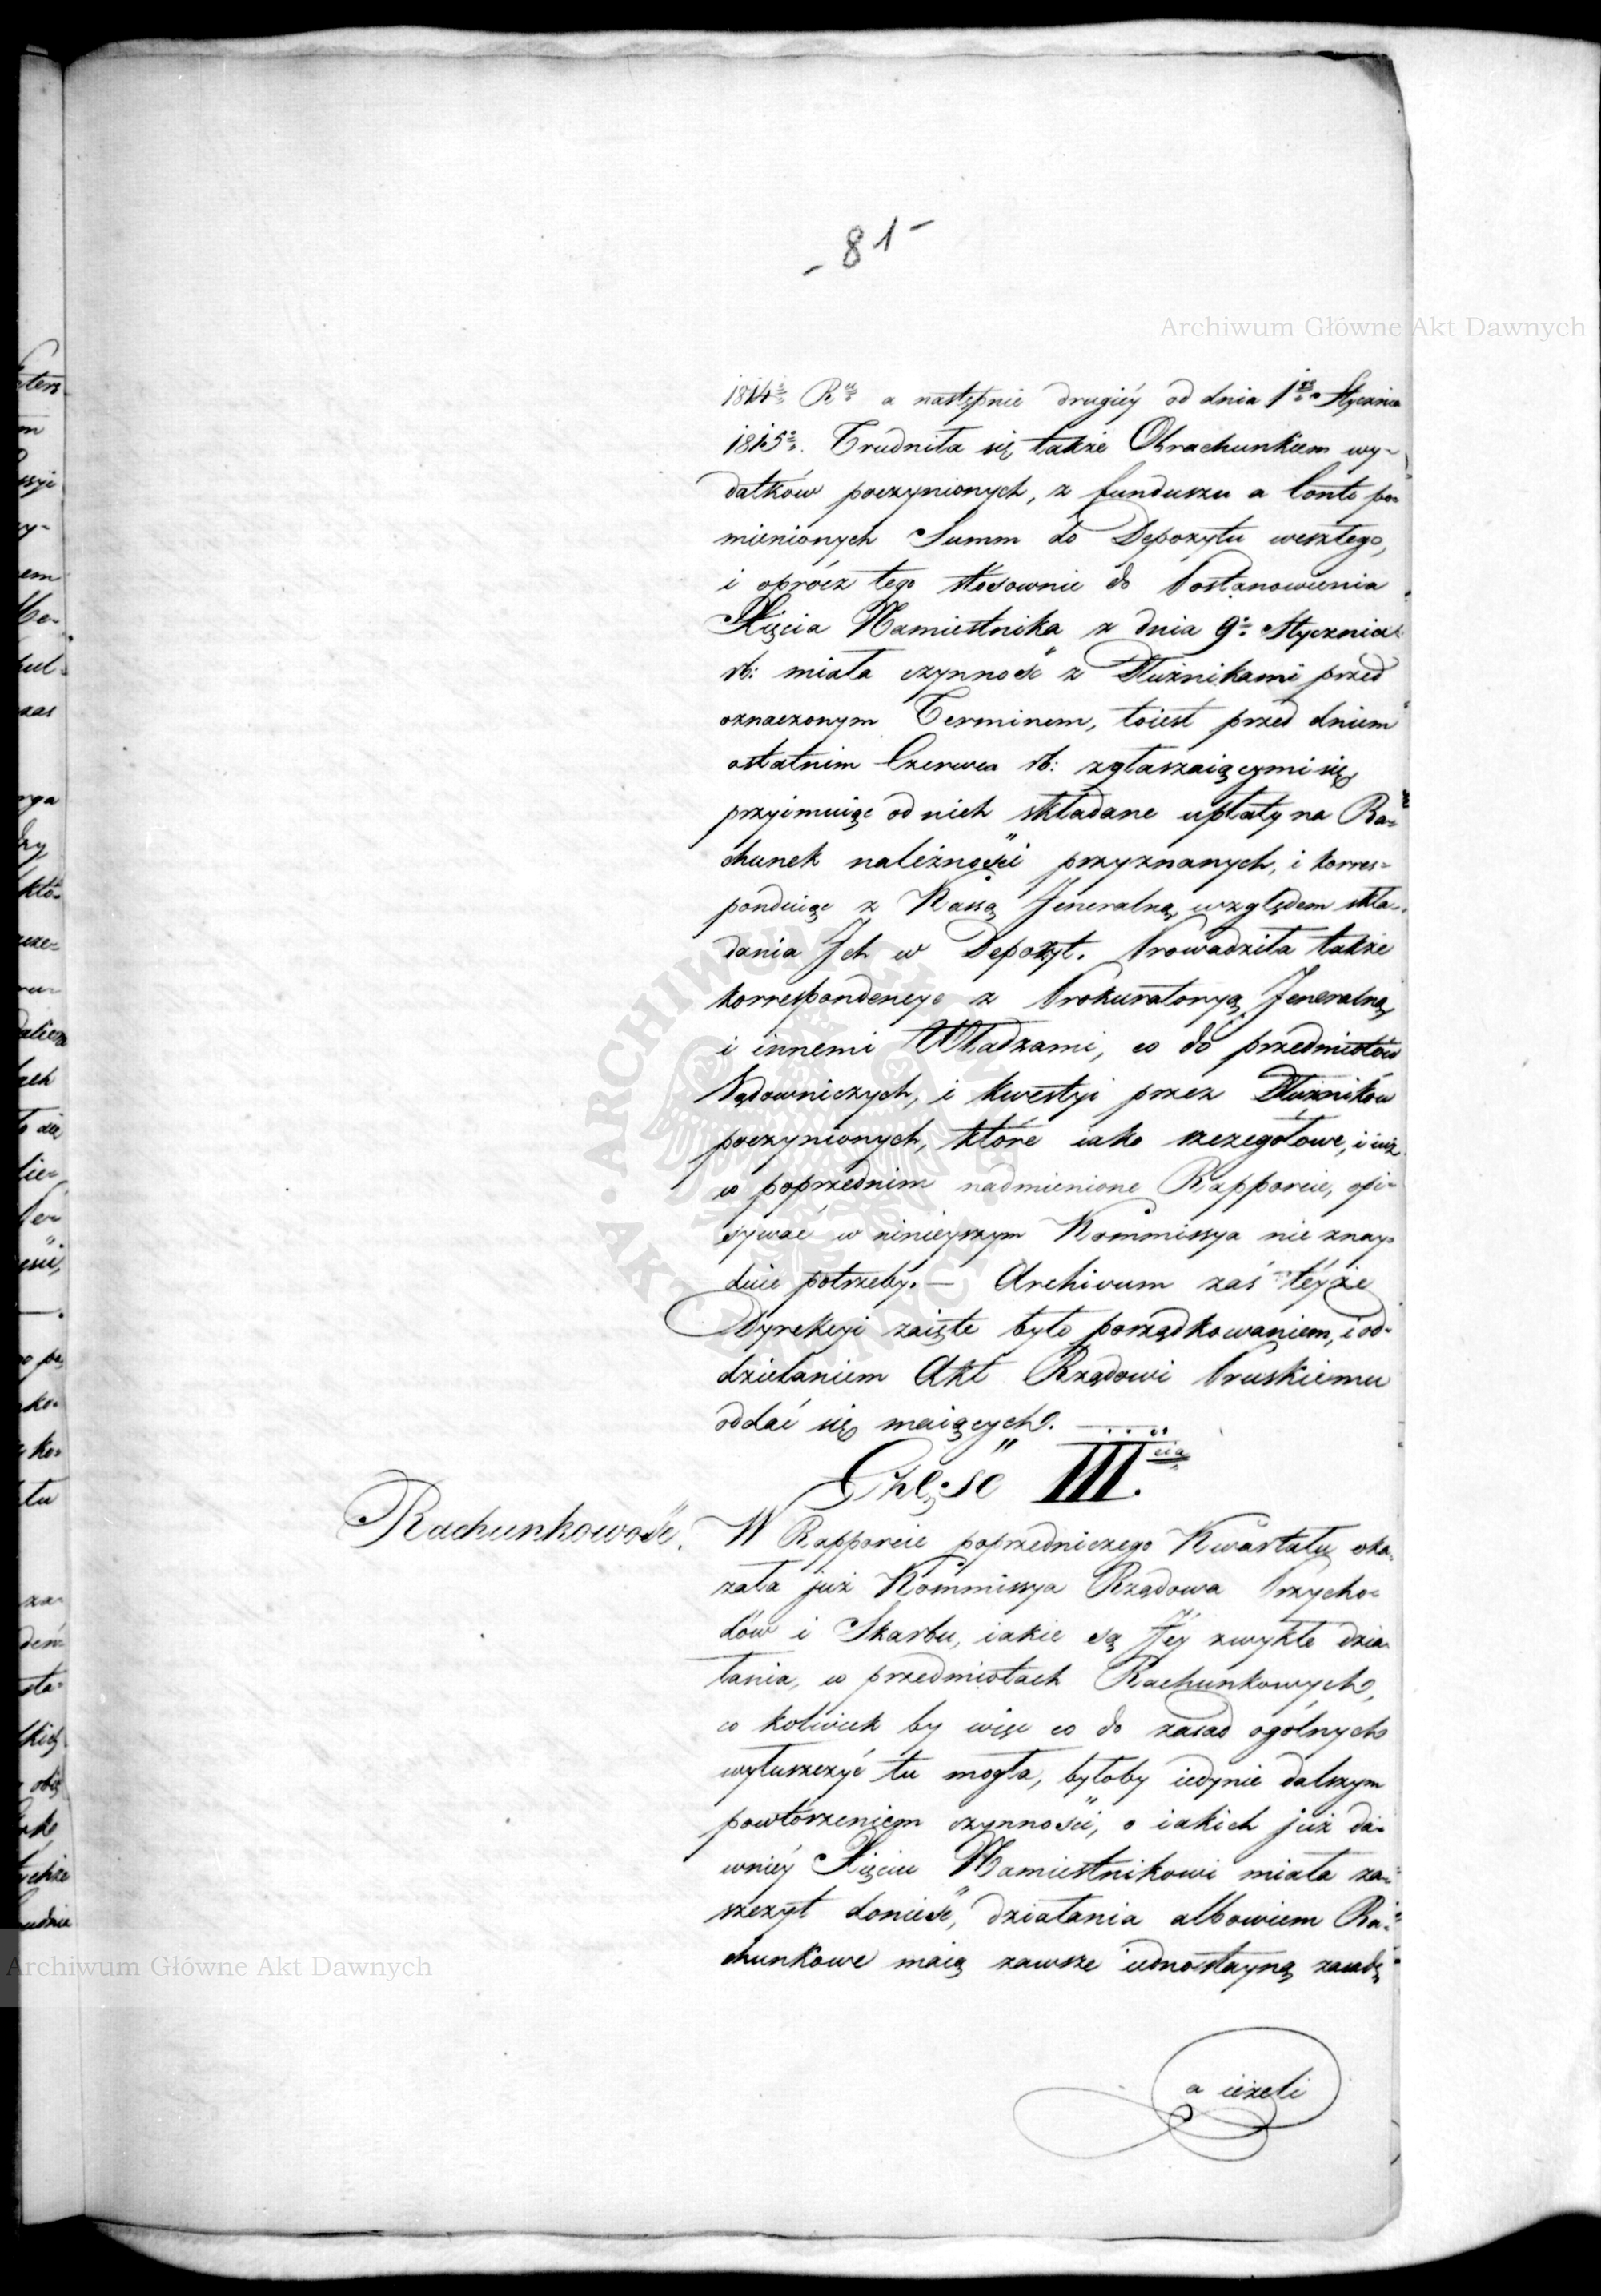 - 81 -
Archiwum Główne Akt Dawnych
1814º Rº a następnie drugiéy od dnia 1go Stycznia
1815º. Trudniła się także Obrachunkiem wy=
datków poczynionych, z funduszu a Conto po=
mienionych Summ do Depozytu weszłego,
i oprócz tego stosownie do Postanowienia
Xięcia Namiestnika z dnia 9º Stycznia
rb: miała czynność z Dłużnikami przed
oznaczonym Terminem, toiest przed dniem
ostatnim Czerwca rb: zgłaszaiącymi się
przyimuiąc od nich składane upłaty na Ra=
chunek należności przyznanych, i korres=
ponduiąc z Kassą Jeneralną względem skła=
dania Jch w Depozyt. Prowadziła także
korrespondencye z Prokuratoryą Jeneralną
i innemi Władzami, co do przedmiotów
Sądowniczych, i kwestyi przez Dłużników
poczynionych, które iako szczegołowe, i iuż
w poprzednim nadmienione Rapporcie, opi=
sywać w ninieyszym Kommissya nie znay=
duie potrzeby. — Archivum zaś téyże
Dyrekcyi zaięte było porządkowaniem, i od=
dzielaniem Akt Rządowi Pruskiemu
oddać się maiących. —
Część III.cia
Rachunkowość.
W Rapporcie poprzedniczego Kwartału oka=
zała już Kommissya Rządowa Przycho=
dów i Skarbu, iakie są Jéy zwykłe dzia=
łania, w przedmiotach Rachunkowych,
co kolwiek by więc co do zasad ogólnych
wyłuszczyć tu mogła, byłoby iedynie dalszym
powtorzeniem czynności, o iakich już da=
wniéy Xięciu Namiestnikowi miała za=
szczyt donieść, działania albowiem Ra=
chunkowe maią zawsze iednostayną zasadę
Archiwum Główne Akt Dawnych
a ieżeli